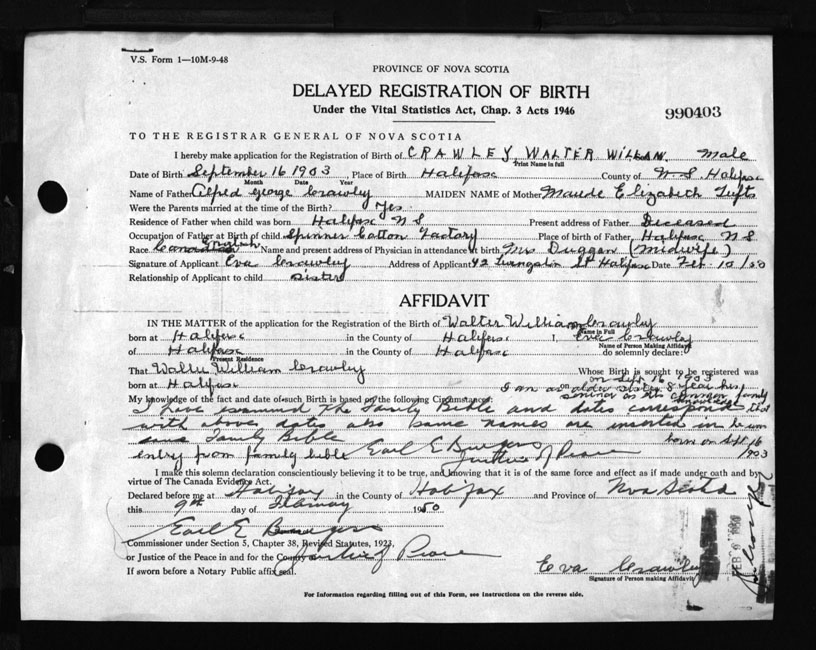 V.S. Form 1—10M-9-48
PROVINCE OF NOVA SCOTIA
DELAYED REGISTRATION OF BIRTH
Under the Vital Statistics Act, Chap. 3 Acts 1946
990403
TO THE REGISTRAR GENERAL OF NOVA SCOTIA
I hereby make application for the Registration of Birth of CRAWLEY, WALTER WILLIAM. Male
Print Name in full
Date of Birth September 16 1903, Place of Birth Halifax County of N.S. Halifax
Month Date Year
Name of Father Alfred George Crawley MAIDEN NAME of Mother Maude Elizabeth Tufts
Were the Parents married at the time of the Birth? Yes.
Residence of Father when child was born Halifax N S Present address of Father Deceased
Occupation of Father at Birth of child Spinner Cotton Factory Place of birth of Father Halifax N S
Race English Name and present address of Physician in attendance at birth Mrs Duggan (Midwife)
Signature of Applicant Eva Crawley Address of Applicant 42 St Halifax Date Feb. 10/50
Relationship of Applicant to child sister
AFFIDAVIT
IN THE MATTER of the application for the Registration of Birth of Walter William Crawley
Name in Full
born at Halifax in the County of Halifax I, Eva Crawley
Name of Person Making Affidavit
of Halifax in the County of Halifax do solemnly declare:
Present Residence
That Walter William Crawley Whose Birth is sought to be registered was
born at Halifax on Sept 16 1903
My knowledge of the fact and date of such Birth is based on the following Circumstances: I am an older sister 8 year his
senior as its common family
knowledge that
I have examined The Family Bible and dates correspond
with above dates also same names are inserted in he was
same Family Bible born on Sept 16
entry from family bible Earl E Burgess Justice of Peace 1903
I make this solemn declaration conscientiously believing it to be true, and knowing that it is of the same force and effect as if made under oath and by
virtue of The Canada Evidence Act.
Declared before me at Halifax in the County of Halifax and Province of Nova Scotia
this 9th day of February 1950
Earl E Burgess
Commissioner under Section 5, Chapter 38, Revised Statutes, 1923,
or Justice of the Peace in and for the County Justice of Peace
If sworn before a Notary Public affix seal.
Eva Crawley
Signature of Person making Affidavit
For Information regarding filling out of this Form, see instructions on the reverse side.